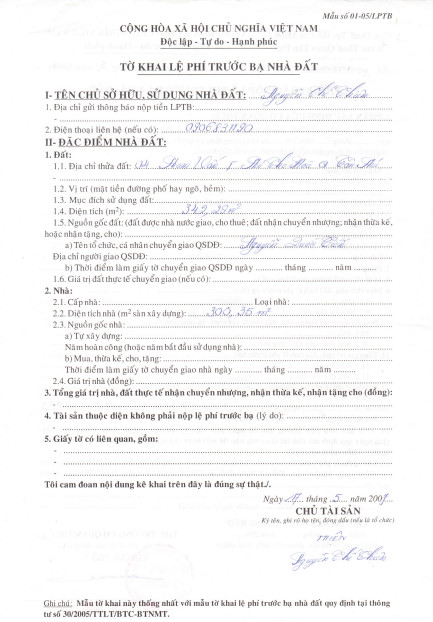 Mẫu số 01-05/LPTB
CỘNG HÒA XÃ HỘI CHỦ NGHĨA VIỆT NAM
Độc lập - Tự do - Hạnh phúc
TỜ KHAI LỆ PHÍ TRƯỚC BẠ NHÀ ĐẤT
I- TÊN CHỦ SỞ HỮU, SỬ DỤNG NHÀ ĐẤT: Nguyễn
1. Địa chỉ gửi thông báo nộp tiền LPTB:
-
2. Điện thoại liên hệ (nếu có): 0906831190
II- ĐẶC ĐIỂM NHÀ ĐẤT:
1. Đất:
1.1. Địa chỉ thửa đất: 44
1.2. Vị trí (mặt tiền đường phố hay ngõ, hẻm):
1.3. Mục đích sử dụng đất:
1.4. Diện tích (m²): m²
1.5. Nguồn gốc đất: (đất được nhà nước giao, cho thuê; đất nhận chuyển nhượng; nhận thừa kế,
hoặc nhận tặng, cho):
a) Tên tổ chức, cá nhân chuyển giao QSDĐ: Nguyễn
Địa chỉ người giao QSDĐ:
b) Thời điểm làm giấy tờ chuyển giao QSDĐ ngày ........... tháng ......... năm ..........
1.6. Giá trị đất thực tế chuyển giao (nếu có):
2. Nhà:
2.1. Cấp nhà: Loại nhà:
2.2. Diện tích nhà (m² sàn xây dựng): 300,35 m²
2.3. Nguồn gốc nhà:
a) Tự xây dựng:
Năm hoàn công (hoặc năm bắt đầu sử dụng nhà):
b) Mua, thừa kế, cho, tặng:
Thời điểm làm giấy tờ chuyển giao nhà ngày ........... tháng .......... năm ..........
2.4. Giá trị nhà (đồng):
3. Tổng giá trị nhà, đất thực tế nhận chuyển nhượng, nhận thừa kế, nhận tặng cho (đồng):
-
4. Tài sản thuộc diện không phải nộp lệ phí trước bạ (lý do):
-
5. Giấy tờ có liên quan, gồm:
-
-
Tôi cam đoan nội dung kê khai trên đây là đúng sự thật./.
Ngày 17 tháng 5 năm 2007
CHỦ TÀI SẢN
Ký tên, ghi rõ họ tên, đóng dấu (nếu là tổ chức)
Nguyễn
Ghi chú: Mẫu tờ khai này thống nhất với mẫu tờ khai lệ phí trước bạ nhà đất quy định tại thông
tư số 30/2005/TTLT/BTC-BTNMT.